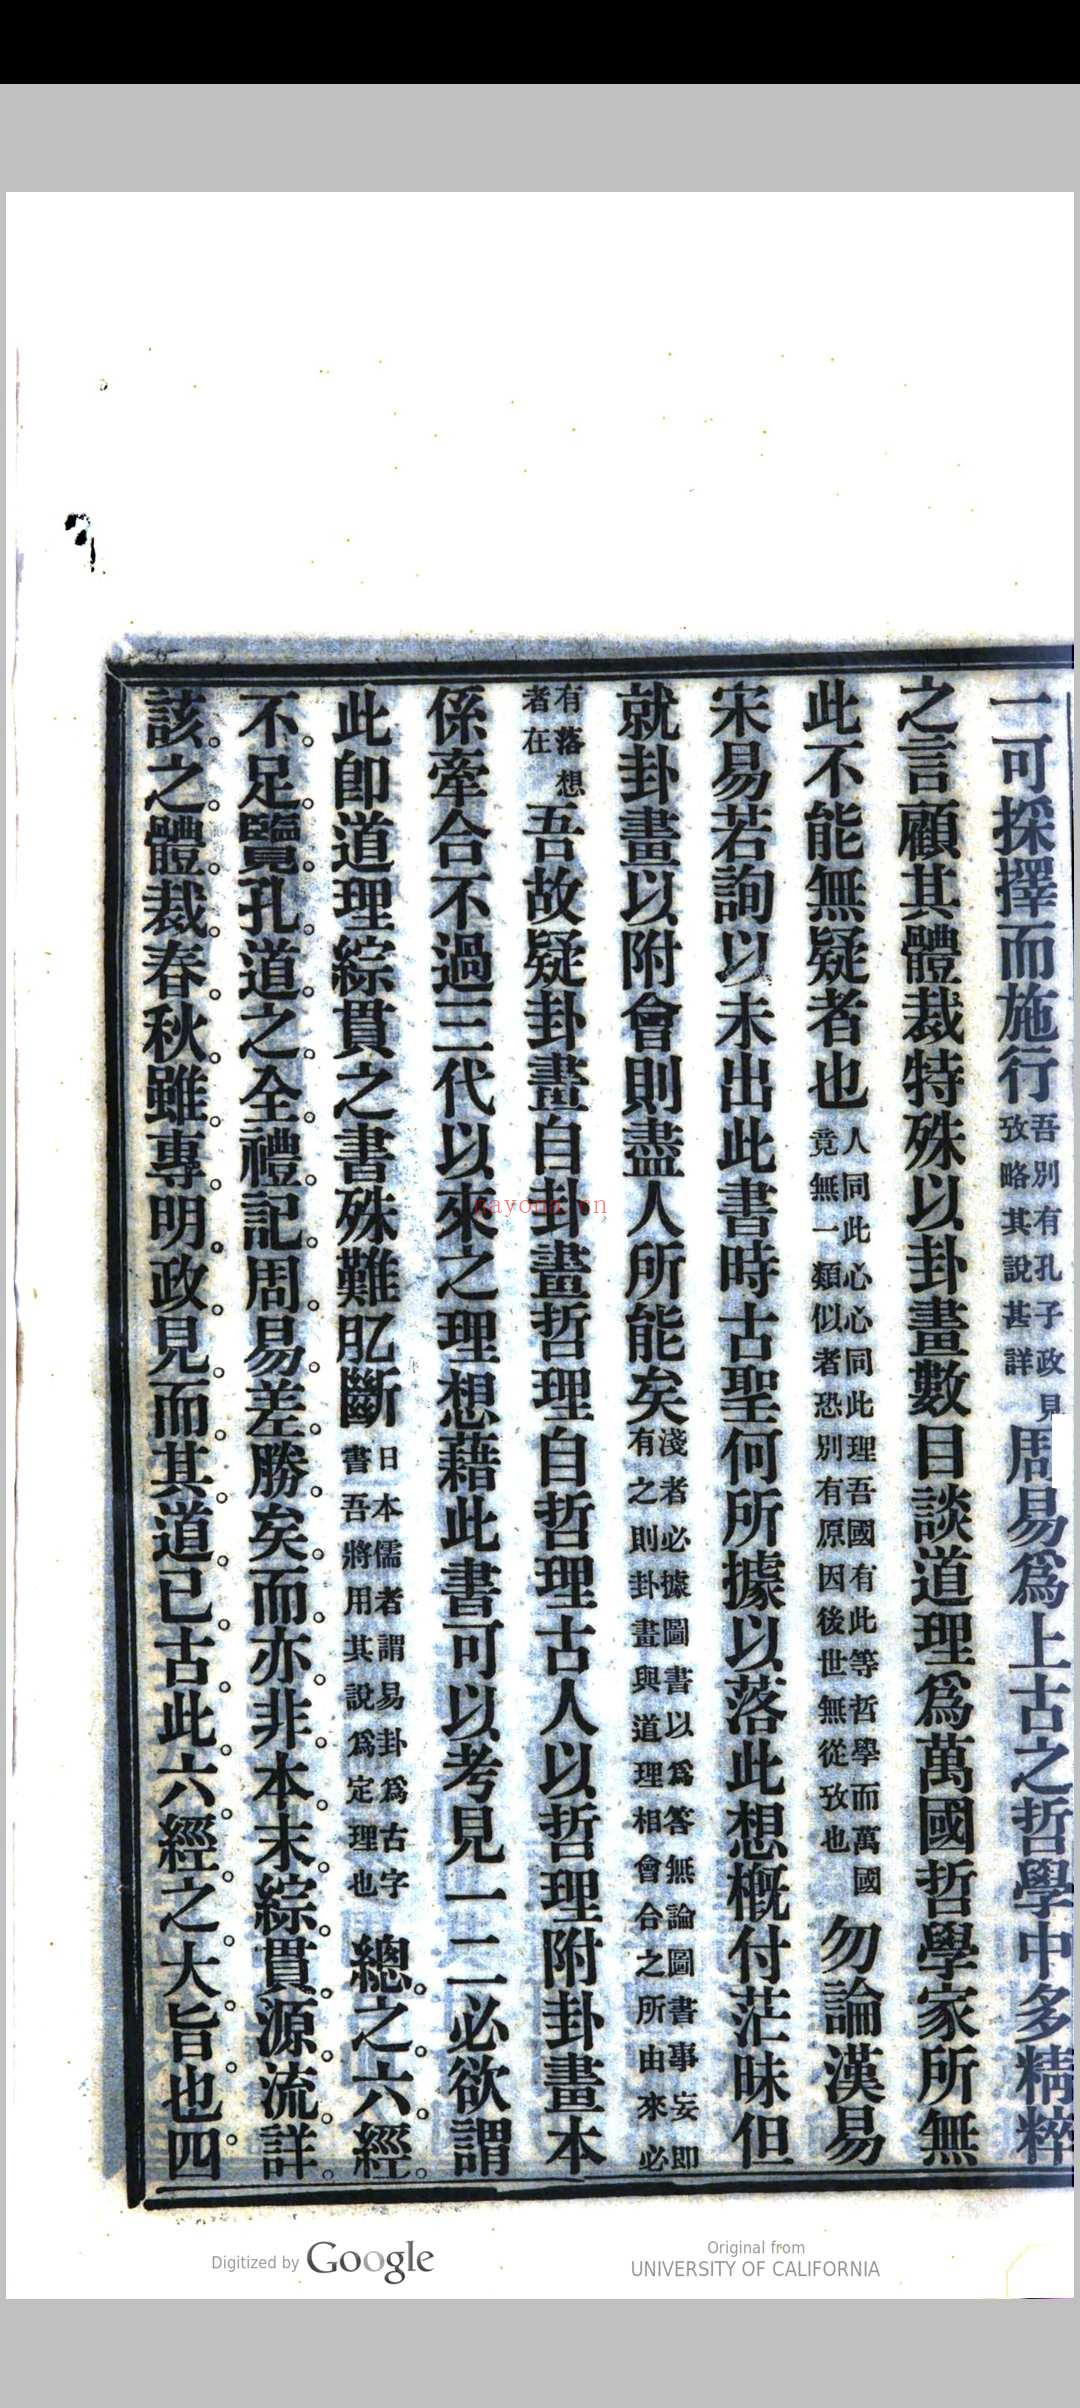 一可採擇而施行吾別有孔子政見攷略其說甚詳周易爲上古之哲學中多精粹
之言顧其體裁特殊以卦畫數目談道理爲萬國哲學家所無
此不能無疑者也人同此心心同此理吾國有此等哲學而萬國竟無一類似者恐別有原因後世無從攷也勿論漢易
宋易若詢以未出此書時古聖何所據以落此想槪付茫昧但
就卦畫以附會則盡人所能矣淺者必據圖書以爲答無論圖書事妄即有之則卦畫與道理相會合之所由來必
有落想者在吾故疑卦畫自卦畫哲理自哲理古人以哲理附卦畫本
係牽合不過三代以來之理想藉此書可以考見一二必欲謂
此卽道理綜貫之書殊難肊斷日本儒者謂易卦爲古字書吾將用其說爲定理也總之六經
不足覽孔道之全禮記周易差勝矣而亦非本末綜貫源流詳
該之體裁春秋雖專明政見而其道已古此六經之大旨也四
nayona.cn
Digitized by Google
Original from
UNIVERSITY OF CALIFORNIA